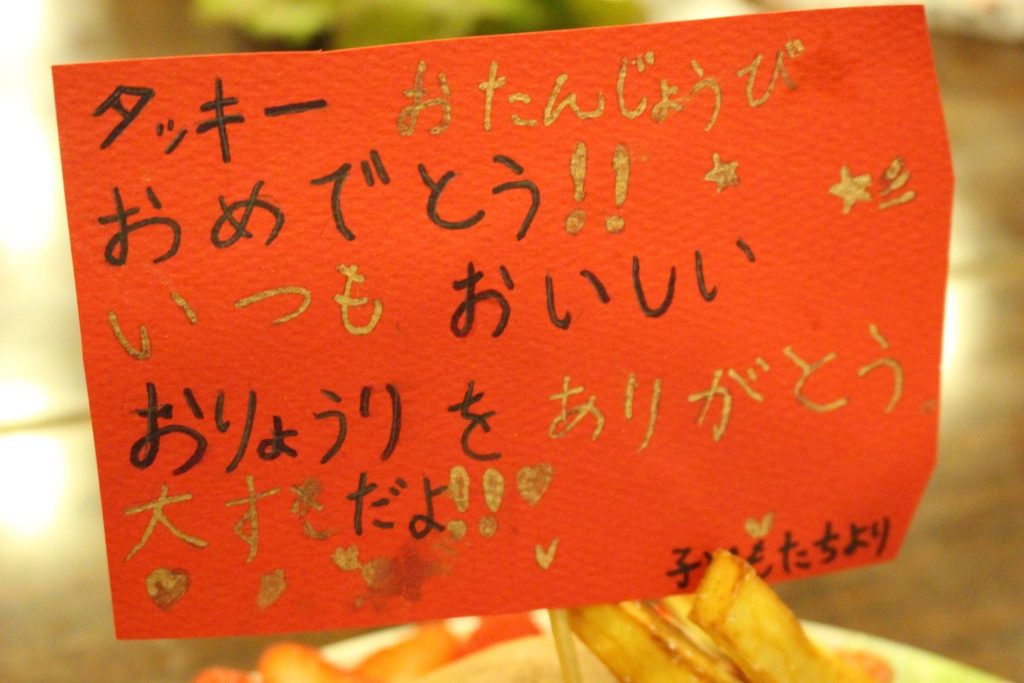 タッキー おたんじょうび
おめでとう!!
いつも おいしい
おりょうりを ありがとう
大すきだよ!!
子どもたちより